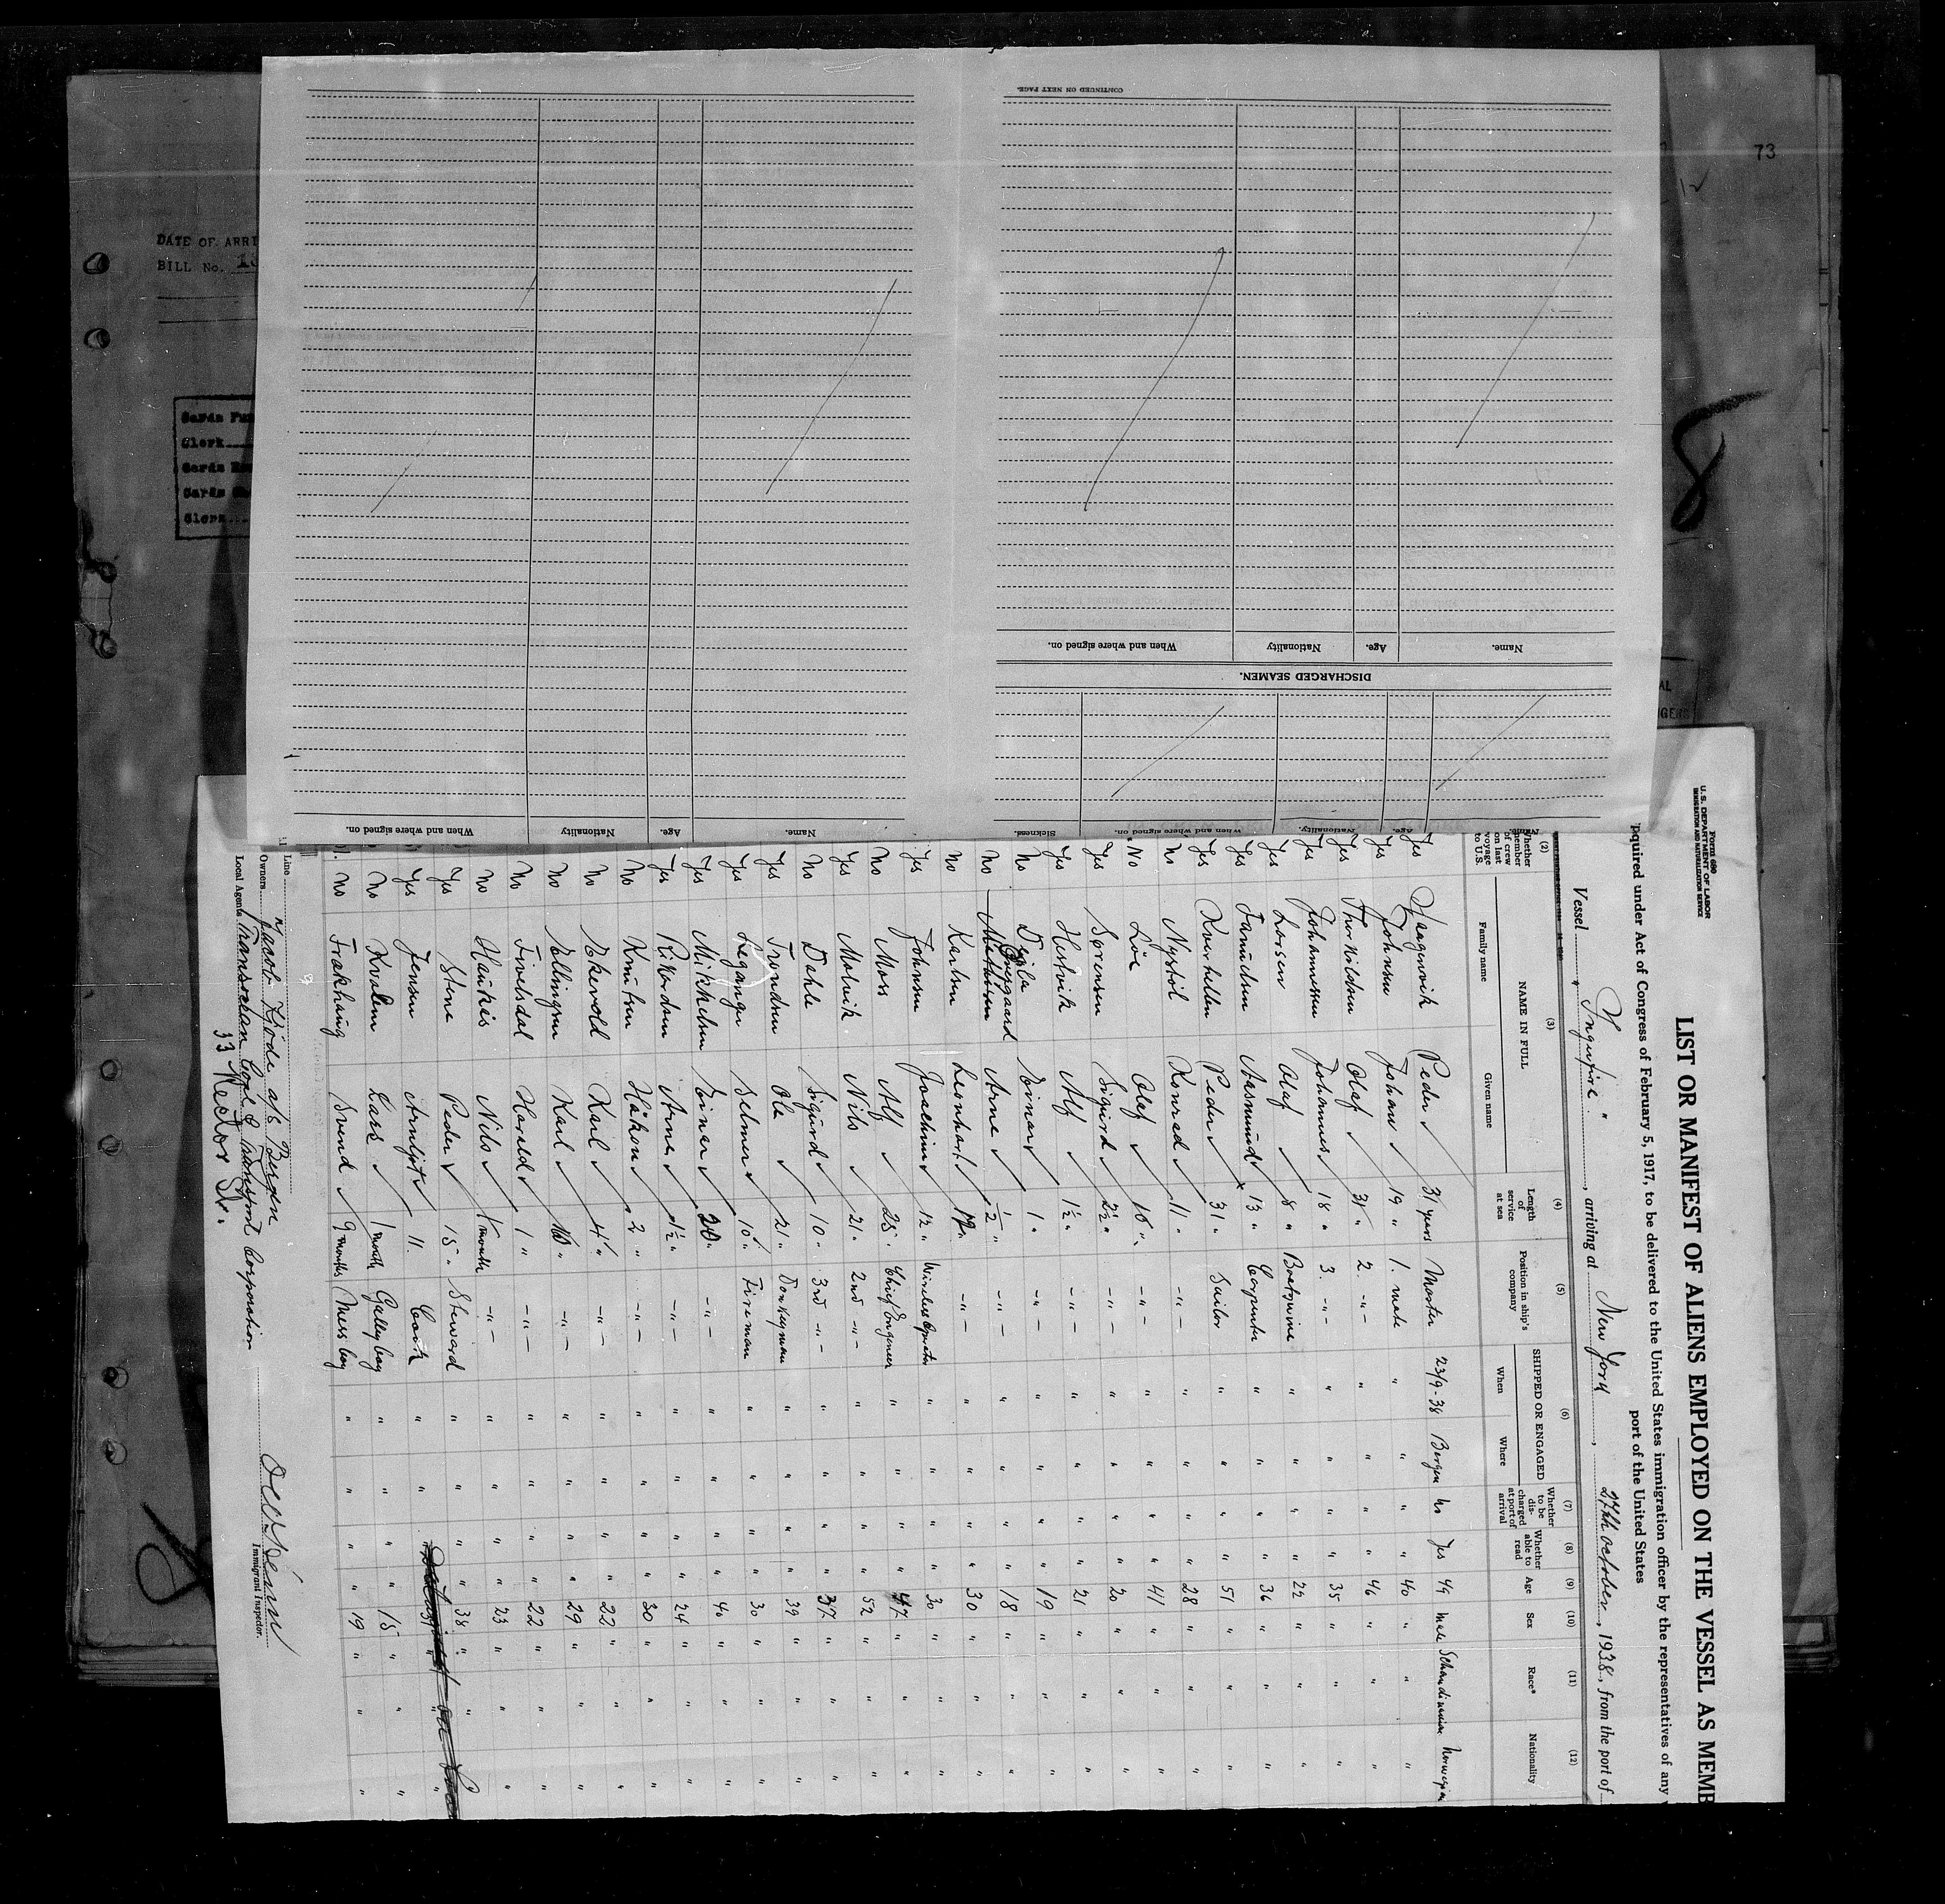 73
DATE OF ARRI
BILL No. 13
Clerk
Clerk
CONTINUED ON NEXT PAGE.
Name.
Age.
Nationality
When and where signed on.
DISCHARGED SEAMEN.
Name.
Age.
Nationality.
When and where signed on.
Sickness.
Name.
Age.
Nationality
When and where signed on.
Form 680
U.S. DEPARTMENT OF LABOR
IMMIGRATION AND NATURALIZATION SERVICE
LIST OR MANIFEST OF ALIENS EMPLOYED ON THE VESSEL AS MEMB
equired under Act of Congress of February 5, 1917, to be delivered to the United States immigration officer by the representatives of any
port of the United States
Vessel "Ingerfire", arriving at New York, 27th october, 1938, from the port of
(2) (3) (4) (5) (6) (7) (8) (9) (10) (11) (12)
Whether member of crew on last voyage to U.S.
NAME IN FULL
Family name Given name
Length of service at sea
Position in ship's company
SHIPPED OR ENGAGED
When Where
Whether to be discharged at port of arrival
Whether able to read
Age
Sex
Race*
Nationality
Yes Vaagenvik Peder 31 years Master 23/9-38 Bergen no Yes 49 male Scandinavian Norwegian
Yes Johnsen Johan 19 " 1. mate " " " " 40 " " "
Yes Olaf 31 " 2. -"- " " " " 46 " " "
Yes Johannessen Johannes 18 " 3. -"- " " " " 35 " " "
Yes Larsen Olaf 8 " " " " " 22 " " "
Yes Samuelsen Aasmund 13 " Carpenter " " " " 36 " " "
Yes Kverhellen Peder 31 " Sailor " " " " 51 " " "
No Nystöl Konrad 11 " -"- " " " " 28 " " "
No Löe Olaf 16 " -"- " " " " 41 " " "
Yes Sørensen Sigurd 2½ " -"- " " " " 20 " " "
Yes Hestvik Alf 1½ " -"- " " " " 21 " " "
No Einar 1 " -"- " " " " 19 " " "
No Arne ½ " -"- " " " " 18 " " "
No Karlsen Leonhart -"- " " " " 30 " " "
Yes Johnsen Joachim 12 " Wireless Operator " " " " 30 " " "
No Moss Alf 25 " Chief Engineer " " " " 47 " " "
Yes Molvik Nils 21 " 2nd -"- " " " " 52 " " "
No Dahle Sigurd 10 " 3rd -"- " " " " 37 " " "
Yes Trondsen Ole 21 " Donkeyman " " " " 39 " " "
Yes Leganger Selmer 10 " Fireman " " " " 30 " " "
Yes Mikkelsen Einar 20 " -"- " " " " 40 " " "
Yes Rikardsen Arne 1½ " -"- " " " " 24 " " "
No Knutsen Håkon 2 " -"- " " " " 30 " " "
No Ekevold Karl 4 " -"- " " " " 22 " " "
No Ellingsen Karl 10 " -"- " " " " 29 " " "
No Finelsdal Harald 1 " -"- " " " " 22 " " "
No Haukås Nils 1 month -"- " " " " 23 " " "
Yes Stene Peder 15 " Steward " " " " 38 " " "
Yes Jensen Arnljot 11 " Cook " "
No Kvalem Lars 1 month Galley boy " " " " 15 " " "
No Frakhaug Svend 9 months Mess boy " " " " 19 " " "
Line
Owners Jacob Kjøde a/s Bergen
Local Agents Transocean Coal & Transport Corporation
33 Rector St.
Immigrant Inspector.